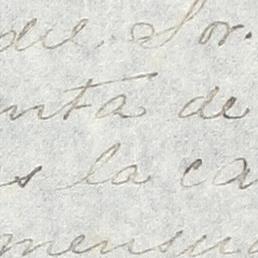 del Sor.
nta de
s la ca
mensua